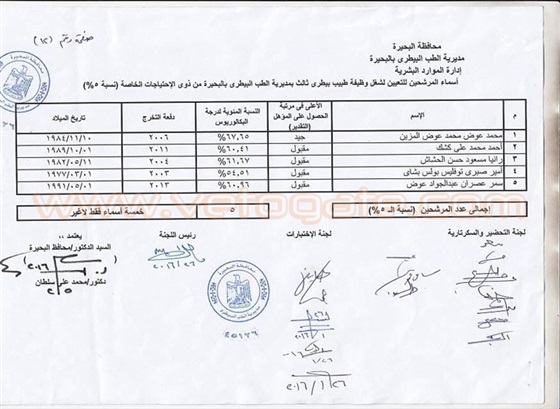 صفحة رقم (١٤)
محافظة البحيرة
مديرية الطب البيطرى بالبحيرة
إدارة الموارد البشرية
أسماء المرشحين للتعيين لشغل وظيفة طبيب بيطرى ثالث بمديرية الطب البيطرى بالبحيرة من ذوى الإحتياجات الخاصة (نسبة ٥%)
م الإسم الأعلى فى مرتبة الحصول على المؤهل (التقدير) النسبة المئوية لدرجة البكالوريوس دفعة التخرج تاريخ الميلاد
١ محمد عوض محمد عوض المزين جيد %٦٧,٦٥ ٢٠٠٦ ١٩٨٤/١١/١٠
٢ أحمد محمد على كشك مقبول %٦٠,٤١ ٢٠١١ ١٩٨٩/١٠/٠١
٣ رانيا مسعود حسن الحشاش مقبول %٦١,٦٧ ٢٠٠٤ ١٩٨٢/٠٥/١١
٤ أمير صبرى توفيلس بولس بشاى مقبول %٥٤,٥١ ٢٠٠٣ ١٩٧٧/٠٣/٠١
٥ سمر عصران عبدالجواد عوض مقبول %٦٠,٩٦ ٢٠١٣ ١٩٩١/٠٥/٠١
إجمالى عدد المرشحين (نسبة الـ ٥%) ٥ خمسة أسماء فقط لاغير
www.vetogate.com
لجنة التحضير والسكرتارية
لجنة الإختبارات
رئيس اللجنة
يعتمد ،،
السيد الدكتور/محافظ البحيرة
دكتور/محمد على سلطان